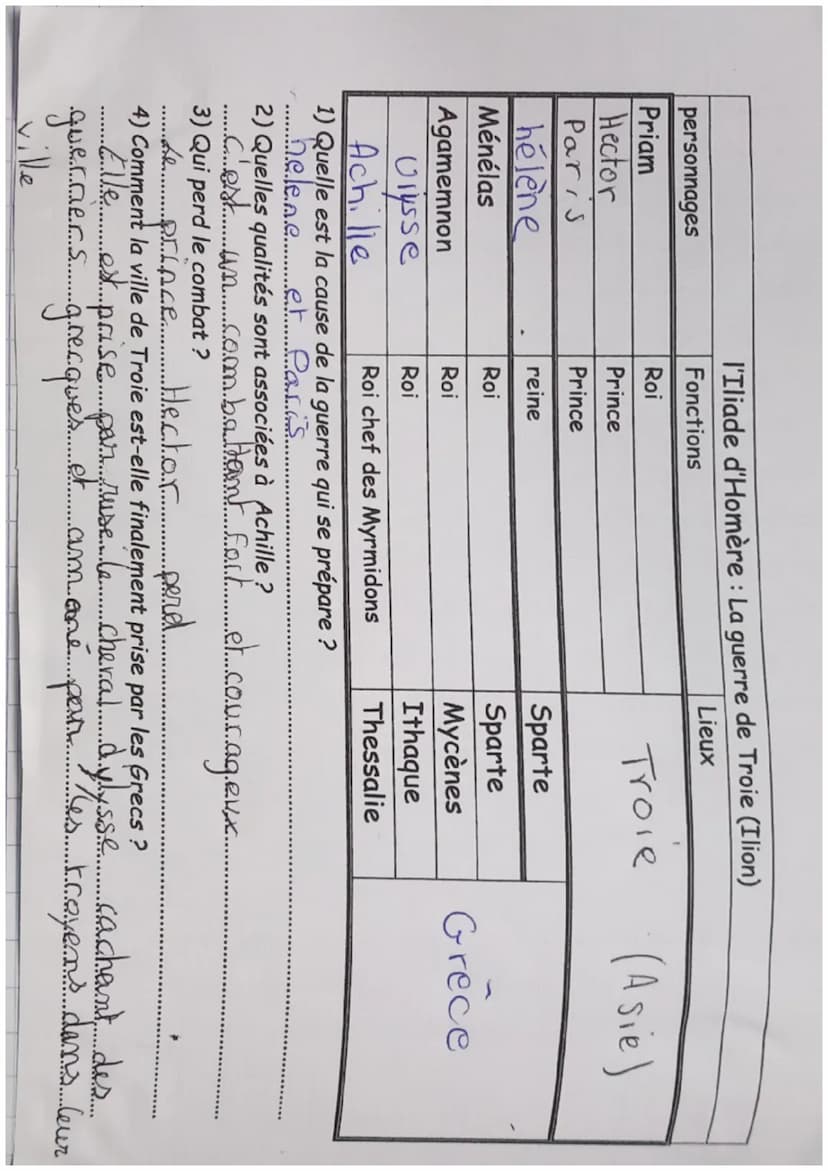 l'Iliade d'Homère : La guerre de Troie (Ilion)
personnages Fonctions Lieux
Priam Roi Troie (Asie)
Hector Prince
Paris Prince
hélène reine Sparte Grèce
Ménélas Roi Sparte
Agamemnon Roi Mycènes
Ulysse Roi Ithaque
Achille Roi chef des Myrmidons Thessalie
1) Quelle est la cause de la guerre qui se prépare ?
helene et Paris
2) Quelles qualités sont associées à Achille ?
C'est un combattant fort et courageux
3) Qui perd le combat ?
Le prince Hector perd
4) Comment la ville de Troie est-elle finalement prise par les Grecs ?
Elle est prise par ruse le cheval d'ylysse cachant des
guerriers grecques et amené par les troyens dans leur
ville